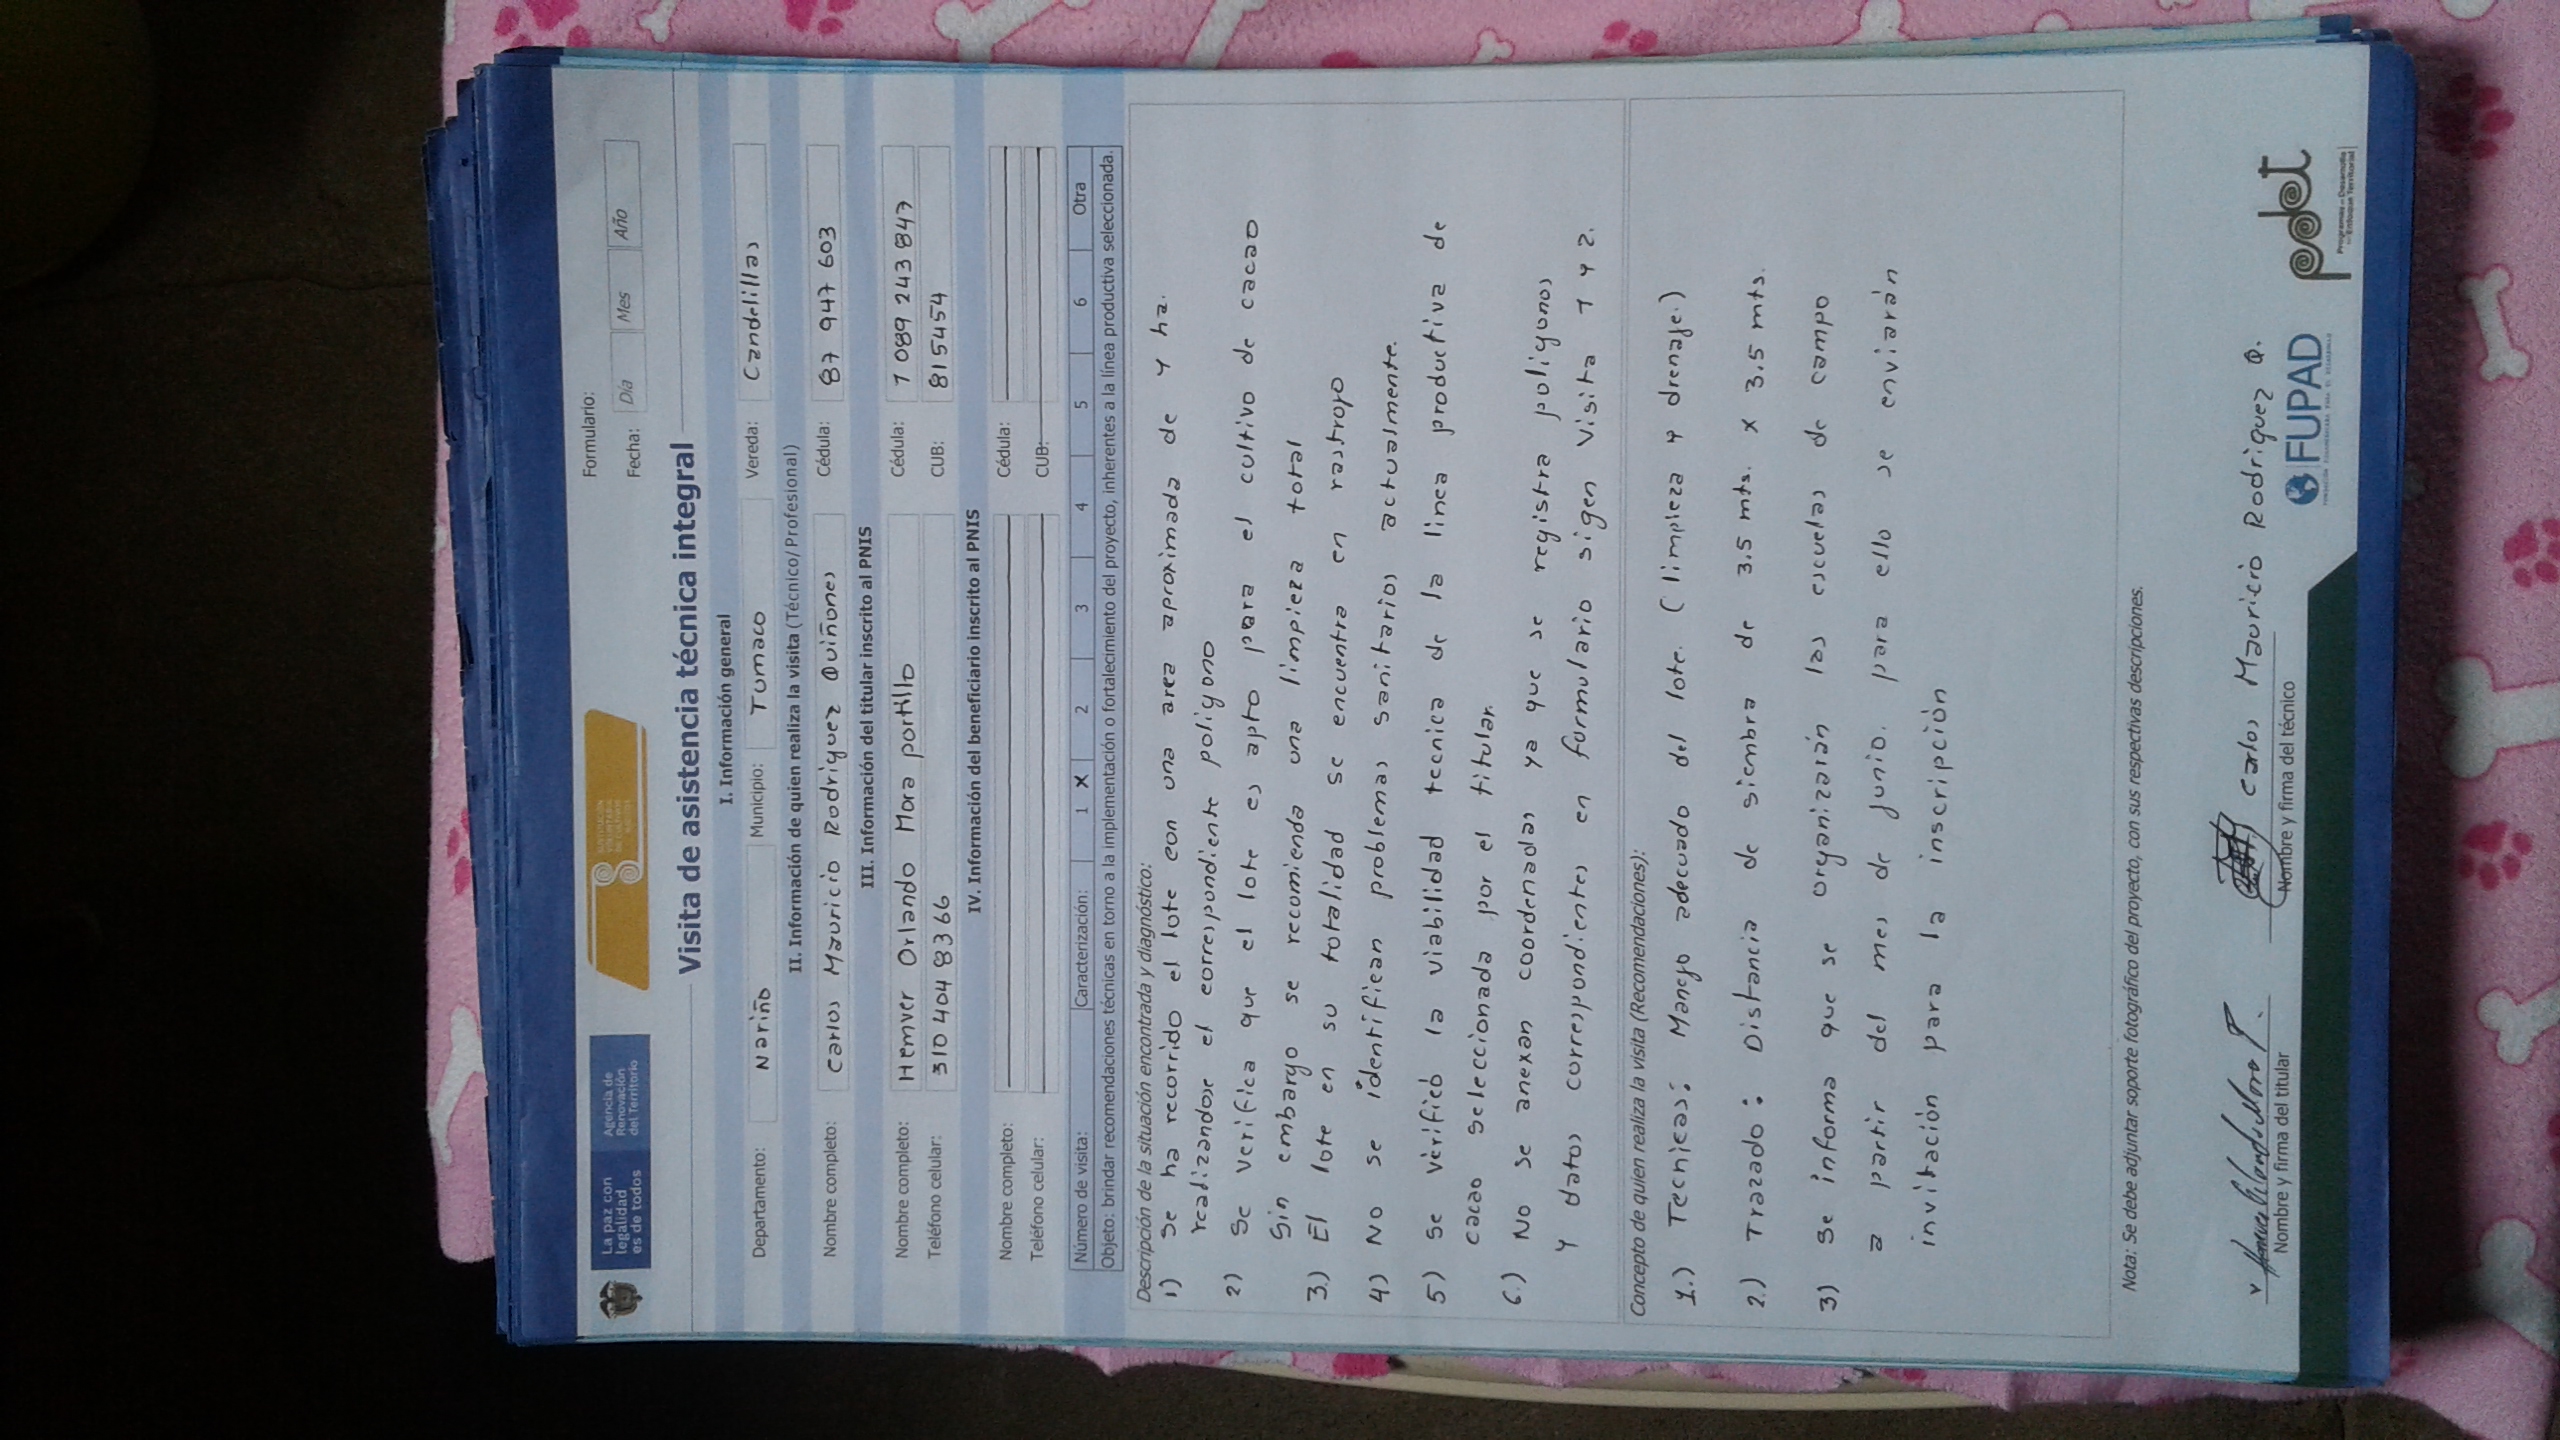 La paz con
legalidad
es de todos
Agencia de
Renovación
del Territorio
SUSTITUCIÓN
VOLUNTARIA
DE CULTIVOS
Formulario:
Fecha: Día Mes Año
Visita de asistencia técnica integral
I. Información general
Departamento: Nariño Municipio: Tumaco Vereda: Candelillas
II. Información de quien realiza la visita (Técnico/Profesional)
Nombre completo: Carlos Mauricio Rodriguez Quiñones Cédula: 87 947 603
III. Información del titular inscrito al PNIS
Nombre completo: Hemver Orlando Mora portillo Cédula: 1 089 243 847
Teléfono celular: 310 404 8366 CUB: 815454
IV. Información del beneficiario inscrito al PNIS
Nombre completo: Cédula:
Teléfono celular: CUB:
Número de visita: Caracterización: 1 X 2 3 4 5 6 Otra
Objeto: brindar recomendaciones técnicas en torno a la implementación o fortalecimiento del proyecto, inherentes a la línea productiva seleccionada.
Descripción de la situación encontrada y diagnóstico:
1) Se ha recorrido el lote con una area aproximada de Y ha.
realizandose el correspondiente poligono
2) Se verifica que el lote es apto para el cultivo de cacao
Sin embargo se recomienda una limpieza total
3.) El lote en su totalidad se encuentra en rastrojo
4) No se identifican problemas sanitarios actualmente.
5) Se verificó la viabilidad tecnica de la linea productiva de
cacao seleccionada por el titular.
6.) No se anexan coordenadas ya que se registra poligonos
Y datos correspondientes en formulario sigen Visita 1 y 2.
Concepto de quien realiza la visita (Recomendaciones):
1.) Tecnicas: Manejo adecuado del lote. (limpieza y drenaje.)
2.) Trazado: Distancia de siembra de 3.5 mts. x 3.5 mts.
3) Se informa que se organizarán las escuelas de campo
a partir del mes de junio. para ello se enviarán
invitación para la inscripción
Nota: Se debe adjuntar soporte fotográfico del proyecto, con sus respectivas descripciones.
Carlos Mauricio Rodriguez Q.
Nombre y firma del titular Nombre y firma del técnico
FUPAD
pdet
Programas de Desarrollo
con Enfoque Territorial